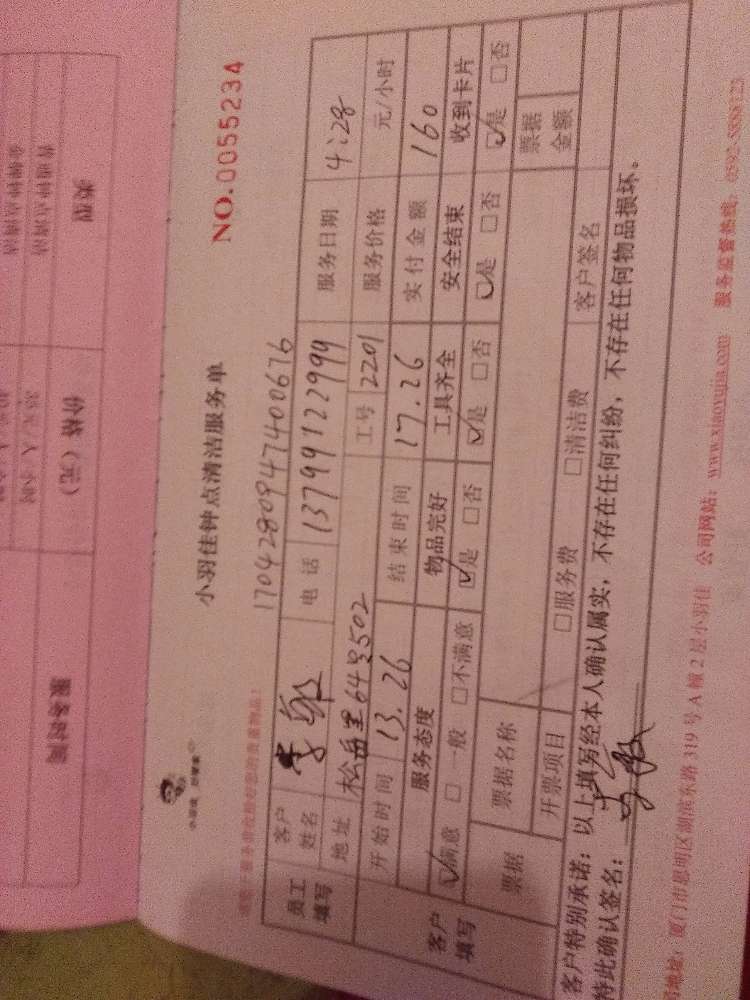 类型
价格（元）
服务时间
NO.0055234
小羽佳钟点清洁服务单
1704280947400676
员工填写
客户姓名
电话 13799122999
服务日期 4:28
地址 松岳里64号502
工号 2201
服务价格 元/小时
开始时间 13.26
结束时间 17.26
实付金额 160
客户填写
服务态度 物品完好 工具齐全 安全结束 收到卡片
☑满意 □一般 □不满意 ☑是 □否 ☑是 □否 ☑是 □否 ☑是 □否
票据
票据名称
票据金额
开票项目 □服务费 □清洁费
客户签名
客户特别承诺：以上填写经本人确认属实，不存在任何纠纷，不存在任何物品损坏。
特此确认签名：
地址：厦门市思明区湖滨东路319号A幢2层小羽佳 公司网站：www.xiaoyujia.com 服务监督热线：0592-5888123